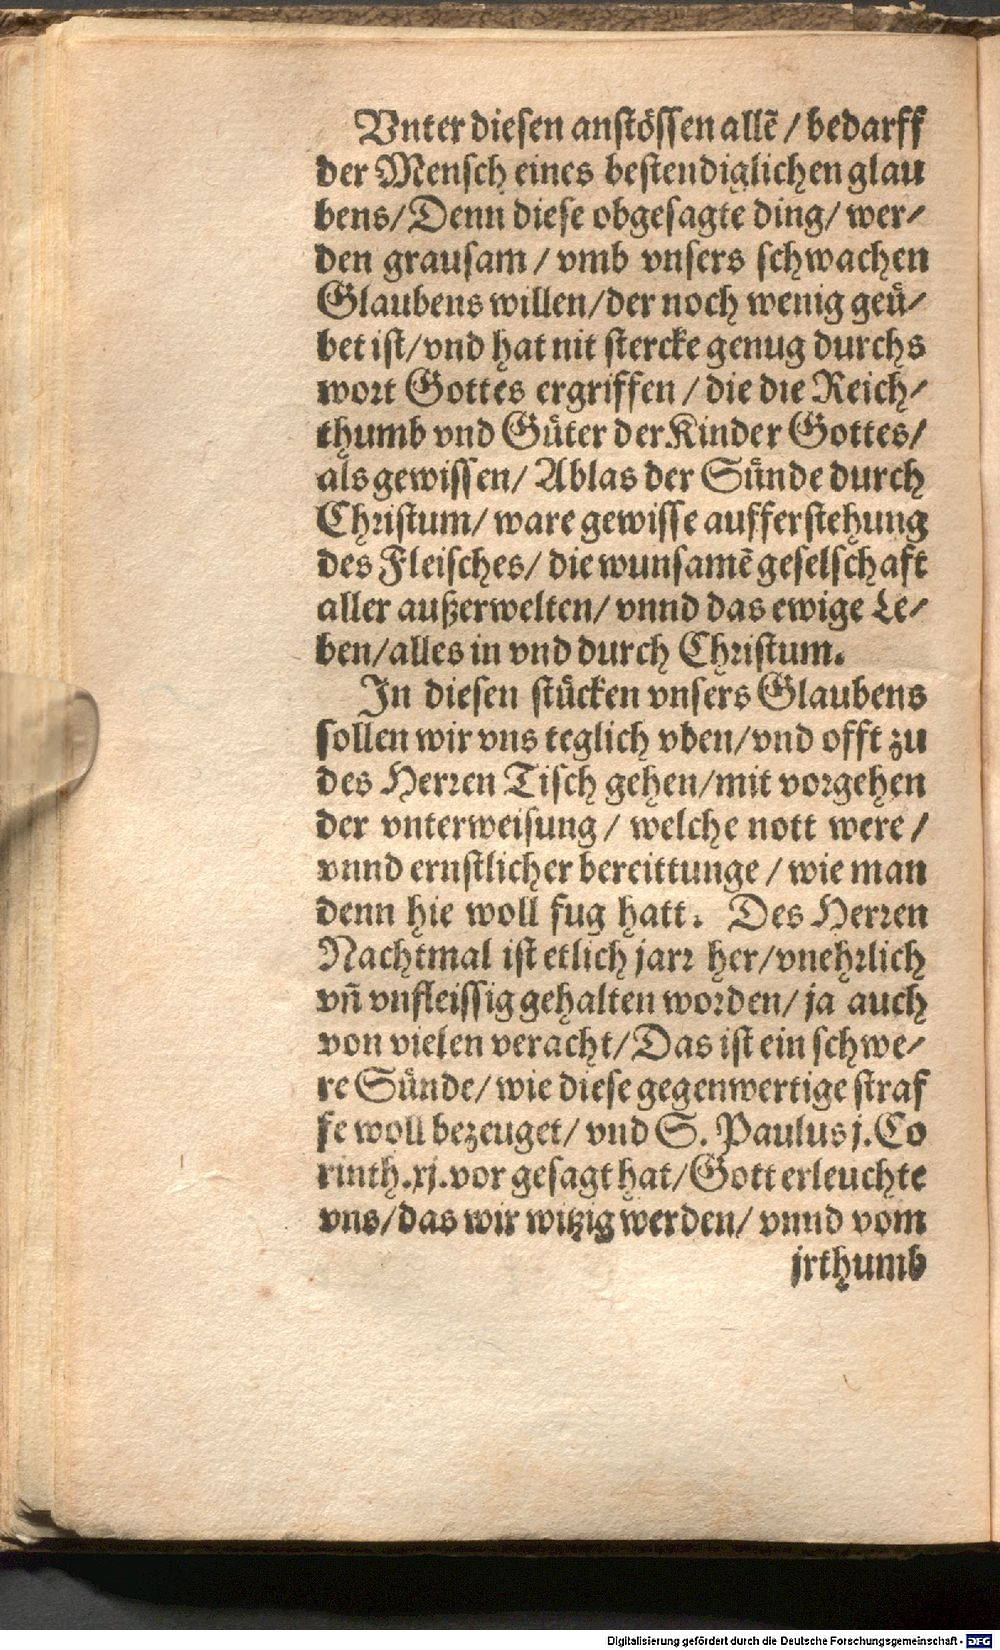 Vnter diesen anstössen allē / bedarff
der Mensch eines bestendiglichen glau
bens/ Denn diese obgesagte ding/ wer⸗
den grausam / vmb vnsers schwachen
Glaubens willen/ der noch wenig geü⸗
bet ist/ vnd hat nit stercke genug durchs
wort Gottes ergriffen / die die Reich⸗
thumb vnd Güter der Kinder Gottes/
als gewissen/ Ablas der Sünde durch
Christum/ ware gewisse aufferstehung
des Fleisches/ die wunsamē geselschaft
aller außerwelten/ vnnd das ewige Le⸗
ben/ alles in vnd durch Christum.
In diesen stücken vnsers Glaubens
sollen wir vns teglich vben/ vnd offt zu
des Herren Tisch gehen/ mit vorgehen
der vnterweisung / welche nott were /
vnnd ernstlicher bereittunge / wie man
denn hie woll fug hatt. Des Herren
Nachtmal ist etlich jarr her/ vnehrlich
vñ vnfleissig gehalten worden/ ja auch
von vielen veracht/ Das ist ein schwe⸗
re Sünde/ wie diese gegenwertige straf
fe woll bezeuget/ vnd S. Paulus j. Co
rinth. xj. vor gesagt hat/ Gott erleuchte
vns/ das wir witzig werden/ vnnd vom
jrthumb
Digitalisierung gefördert durch die Deutsche Forschungsgemeinschaft - DFG